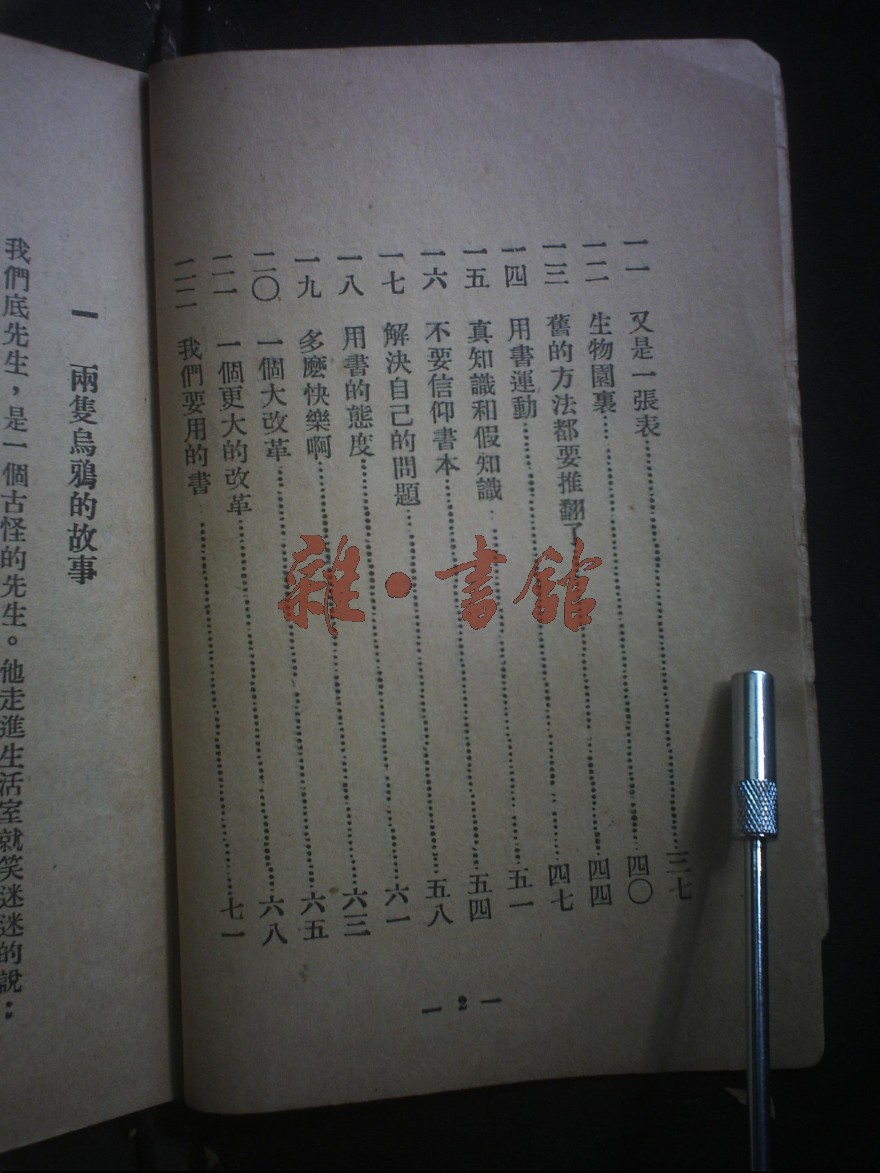 一一 又是一張表……三七
一二 生物園裏……四〇
一三 舊的方法都要推翻了……四四
一四 用書運動……四七
一五 真知識和假知識……五一
一六 不要信仰書本……五四
一七 解決自己的問題……五八
一八 用書的態度……六一
一九 多麽快樂啊……六三
二〇 一個大改革……六五
二一 一個更大的改革……六八
二二 我們要用的書……七一
— 2 —
一 兩隻烏鴉的故事
我們底先生，是一個古怪的先生。他走進生活室就笑迷迷的說：
雜·書館